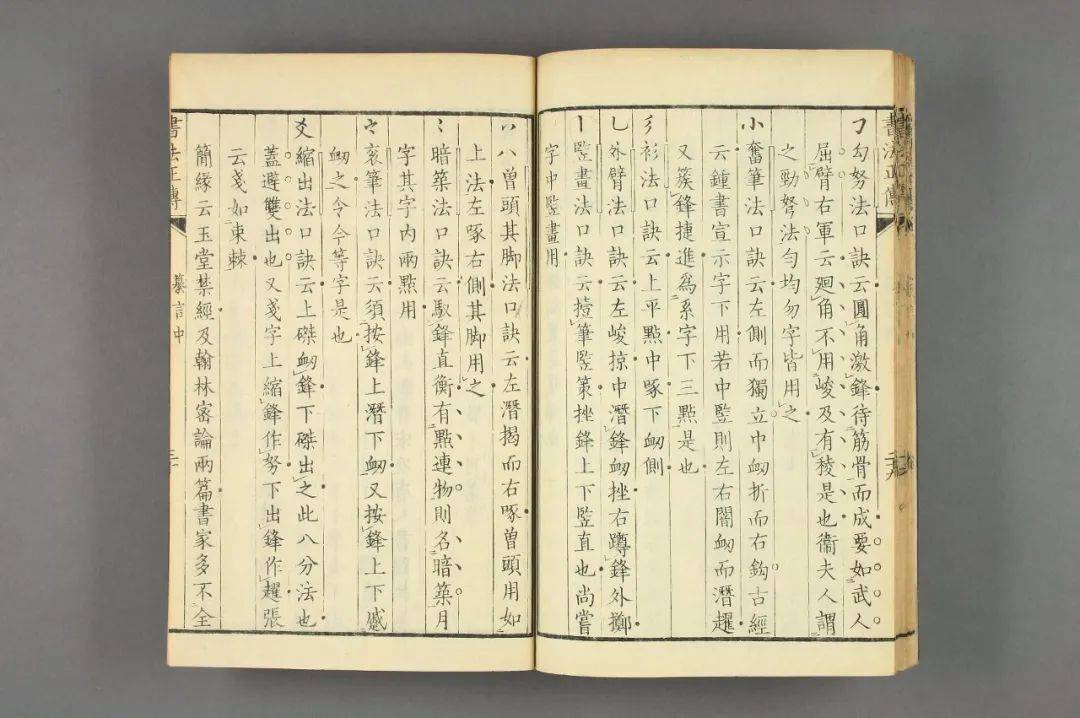 書法正傳
𠃌勾努法口訣云圓角激鋒待筋骨而成要如武人
屈臂右軍云廻角不用峻及有稜是也衞夫人謂
之勁弩法勻均勿字皆用之
小奮筆法口訣云左側而獨立中衂折而右鈎古經
云鍾書宣示字下用若中豎則左右闇衂而潛趯
又蔟鋒捷進爲系字下三點是也
彡衫法口訣云上平點中啄下衂側
乚外臂法口訣云左峻掠中潛鋒衂挫右蹲鋒外擲
丨豎畫法口訣云擡筆豎策挫鋒上下豎直也尚嘗
字中豎畫用
八曾頭其脚法口訣云左潛揭而右啄曽頭用如
上法左啄右側其脚用之
暗築法口訣云馭鋒直衡有點連物則名暗築月
字其字内兩點用
衮筆法口訣云須按鋒上潛下衂又按鋒上下蹙
衂之令今等字是也
爻縮出法口訣云上磔衂鋒下磔出之此八分法也
葢避雙出也又戔字上縮鋒作努下出鋒作趯張
云戔如東棘
簡縁云玉堂禁經及翰林密論兩篇書家多不全
書法正傳
纂言中
三一